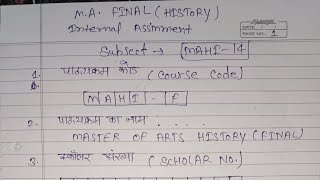 M.A. FINAL (HISTORY)
Internal Assinment
DATE:
PAGE NO.: 1
Subsect → MAHI-14
1. पाठ्यक्रम कोड (Course Code)
MAHI-F
2. पाठ्यक्रम का नाम . . . .
MASTER OF ARTS HISTORY (FINAL)
3. स्कॉलर संख्या (SCHOLAR NO.)